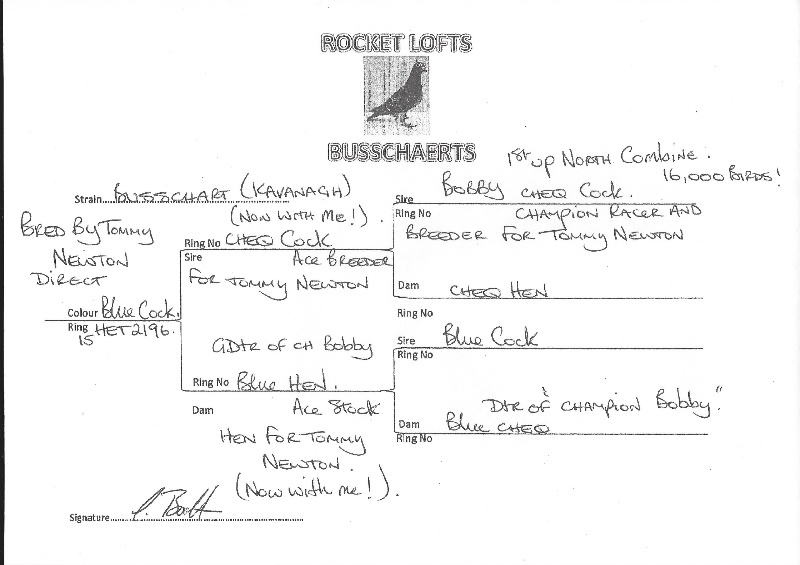 ROCKET LOFTS
BUSSCHAERTS
1st up North Combine.
16,000 Birds!
Strain BUSSCHART (KAVANAGH)
Bred By Tommy
Newton
Direct
Colour Blue Cock.
Ring HET 2196.
15
(Now with me!).
Ring No CHEQ Cock
Sire Ace Breeder
For Tommy Newton
GDtr of CH Bobby
Ring No Blue Hen.
Dam Ace Stock
Hen For Tommy
Newton.
(Now with me!).
Sire Bobby CHEQ Cock.
Ring No Champion Racer And
Breeder For Tommy Newton
Dam CHEQ Hen
Ring No
Sire Blue Cock
Ring No
Dtr of "Champion Bobby".
Dam Blue CHEQ
Ring No
Signature